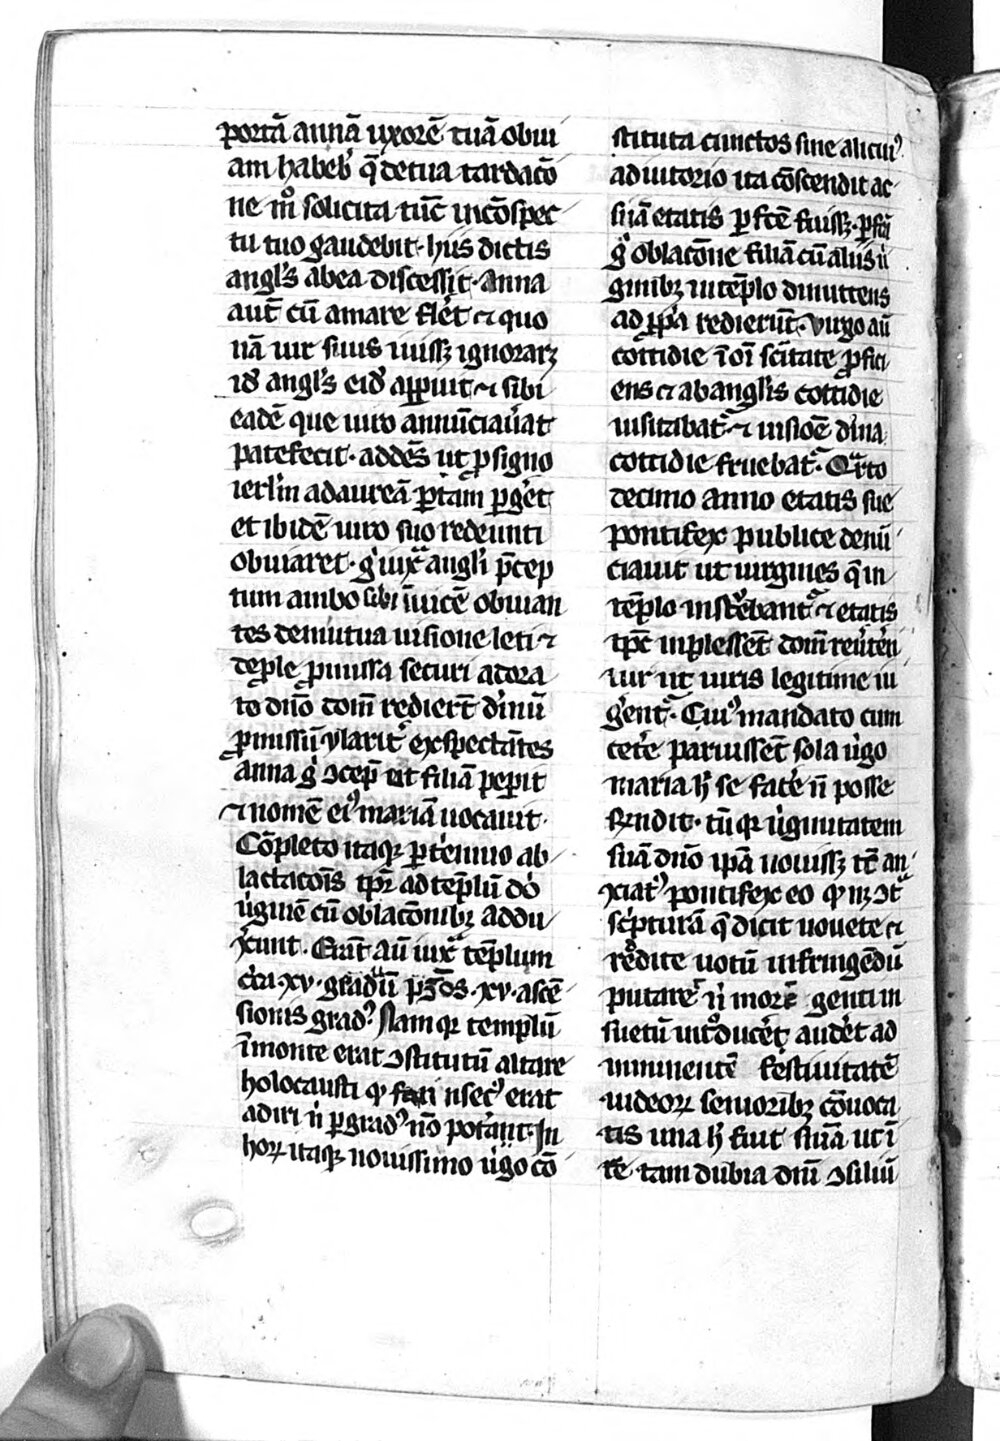 portā annā uxorē tuā obui
am habeb' q̄ de tua tardacō
ne mͦ solicita tūc in cōspec
tu tuo gaudebit · hiis dictis
angl's ab ea discessit · Anna
aut̄ cū amare flēt ⁊ quo
nā uir suus iuissꝫ ignorarꝫ
id' angl's eid' apꝑuit ⁊ sibi
eadē que uiro annūciau'at
patefecit · addēs ut ꝓ signo
ierl'm ad aureā portam ꝑg'et
et ibidē uiro suo redeunti
obuiaret · g' iuxͣ angl'i p̄cep
tum ambo sibi īuicē obuian
tes de mutua uisione leti ⁊
de ꝓle ꝓmissa securi adora
to dn̄o dom̄ redier̄t diuinū
ꝓmissū ylarit' exspectātes
anna g' ↄcep̄it filiā peꝑit
⁊ nomē eiꝰ mariā uocauit ·
Cōpleto itaqꝫ ꝑtennio ab
lactacōis tp̄r ad tēplū do'
u'ginē cū oblacōnibꝫ addu
xerunt · Erāt aū iuxͣ tēplum
cͥca · xv · gradͧū p̄ · xv · ascē
sionis gradꝰ Nam qꝛ templū
ī monte erat ↄstitutū altare
holocausti qͦ forinsecꝰ erat
adiri n̄ ꝑ gradꝰ nō poͭant · In
hoꝝ itaqꝫ nouissimo u'go cō
stituta cunctos sine alicuiꝰ
adiutorio ita cōscendit ac
si iā etatis ꝑfcē fuissꝫ · ꝑfcā
g' oblacōne filiā cū aliis u'
ginibꝫ in tēplo dimittens
ad ꝓp'a redierūt · Virgo aū
cottidie ī oī scītate ꝓfici
ens ⁊ ab angl'is cottidie
uisitabat̄ ⁊ uisiōe diuina
cottidie fruebat̄ · Qͣrto
decimo anno etatis sue
pontifex publice denū
ciauit ut uirgines q̄ in
tēplo instͥebant̄ ⁊ etatis
tp̄c inplessēt dom̄ reu'tēn
uir ut uiris legitime iu
g'ent̄ · Cuiꝰ mandato cum
cete' paruissēt sola u'go
maria h' se face' n̄ posse
rn̄dit · tū qꝛ u'ginitatem
suā dn̄o ip̄a nouissꝫ tc̄ an
xiatꝰ pontifex eo qͦ nꝫ ↄt
sc'pturā q̄ dicit uouete ⁊
reddite uotū infringēdū
putaret̄ n̄ morē genti in
suetū introducēt audēt ad
imminentē festiuitatē
iudeoꝝ senioribꝫ cōuoca
tis una h' fuit sn̄ia ut ī
re tam dubia dn̄i ↄsiliū